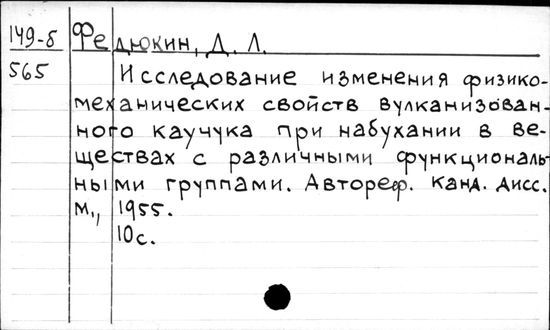 149-8 Федюкин, Д. Л.
565 Исследование изменения физико-
механических свойств вулканизован-
ного каучука при набухании в ве-
ществах с различными функциональ-
ными группами. Автореф. канд. дисс.
М., 1955.
10 с.